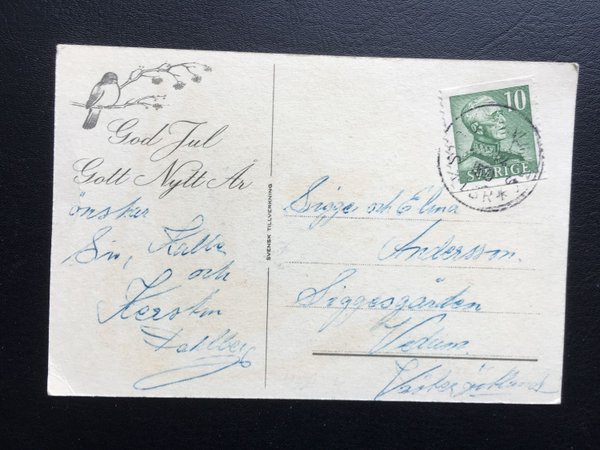 God Jul
Gott Nytt År
önskar
Siv, Kalle
och
Kerstin
Dahlberg
SVENSK TILLVERKNING
10
SVERIGE
Sigge och Elma
Andersson.
Siggesgården
Vedum.
Västergötland